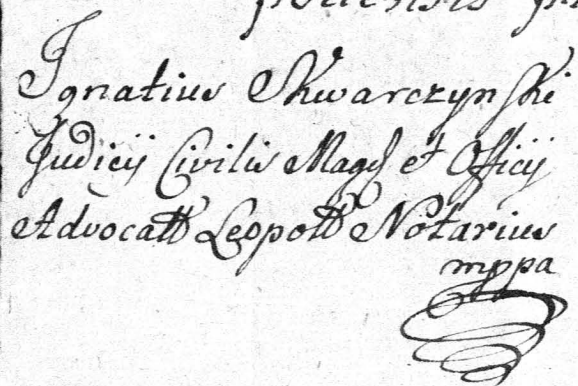 Ignatius Skwarczynski
Judicij Civilis Mags et Officij
Advocatt Leopott Notarius
mppa